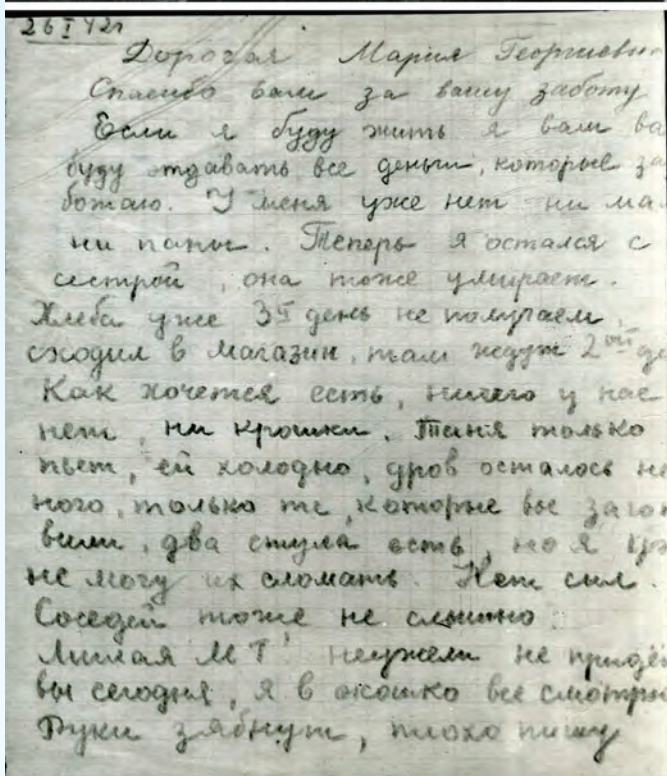 26 I 42г
Дорогая Мария Георгиевн
Спасибо вам за вашу заботу
Если я буду жить я вам ва
буду отдавать все деньги, которые за
ботаю. У меня уже нет ни ма
ни папы. Теперь я остался с
сестрой, она тоже умирает.
Хлеба уже 3й день не получаем,
сходил в магазин, там ждут 2ой де
Как хочется есть, ничего у нас
нет, ни крошки. Таня только
пьет, ей холодно, дров осталось не
ного, только те, которые вы загот
вили, два стула есть, но я
не могу их сломать. Нет сил.
Соседей тоже не слышно.
Милая М Г! неужели не придё
вы сегодня, я в окошко все смотрю
Руки зябнут, плохо пишу